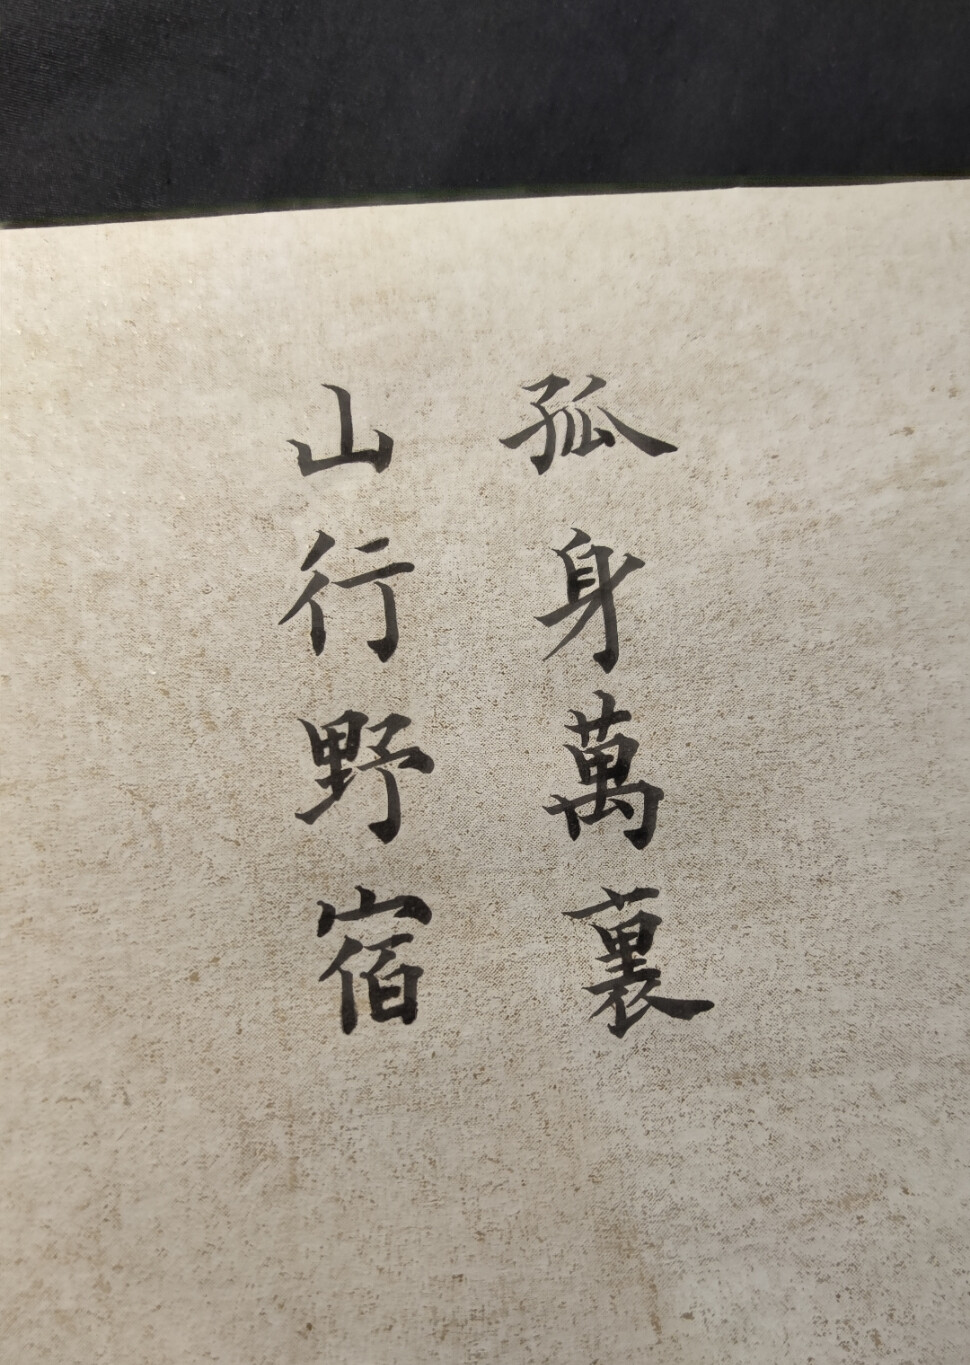 孤身萬裏
山行野宿